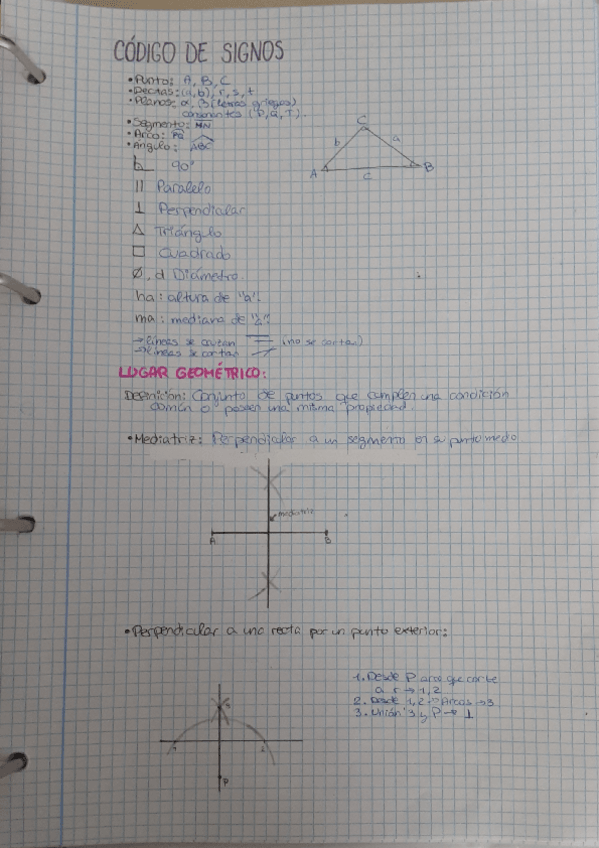 CÓDIGO DE SIGNOS
• Punto: A, B, C
• Rectas: (a, b), r, s, t
• Planos: α, β (letras griegas)
consonantes (P, Q, T).
• Segmento: MN
• Arco: PQ
• Angulo: ABC
90°
|| Paralelo
⊥ Perpendicular
△ Triángulo
□ Cuadrado
Ø, d Diámetro
ha: altura de "a".
ma: mediana de "a".
→ líneas se cortan (no se cortan)
→ líneas se cortan
C
b a
A c B
LUGAR GEOMÉTRICO:
Definición: Conjunto de puntos que cumplen una condición
común o poseen una misma propiedad.
• Mediatriz: Perpendicular a un segmento en su punto medio
mediatriz
A B
• Perpendicular a una recta por un punto exterior:
1. Desde P arco que corte
a r → 1, 2
2. Desde 1, 2 → Arcos → 3
3. Unión 3 y P → ⊥
3
1 2
P